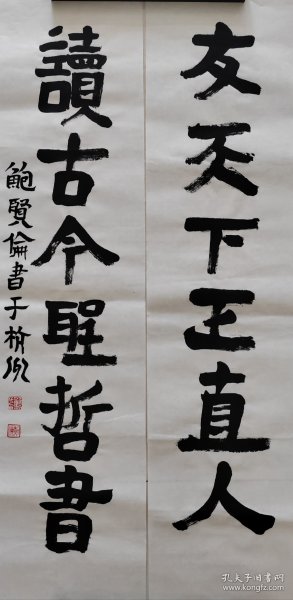 友天下正直人
讀古今聖哲書
鮑賢倫書于榆州
孔夫子旧书网